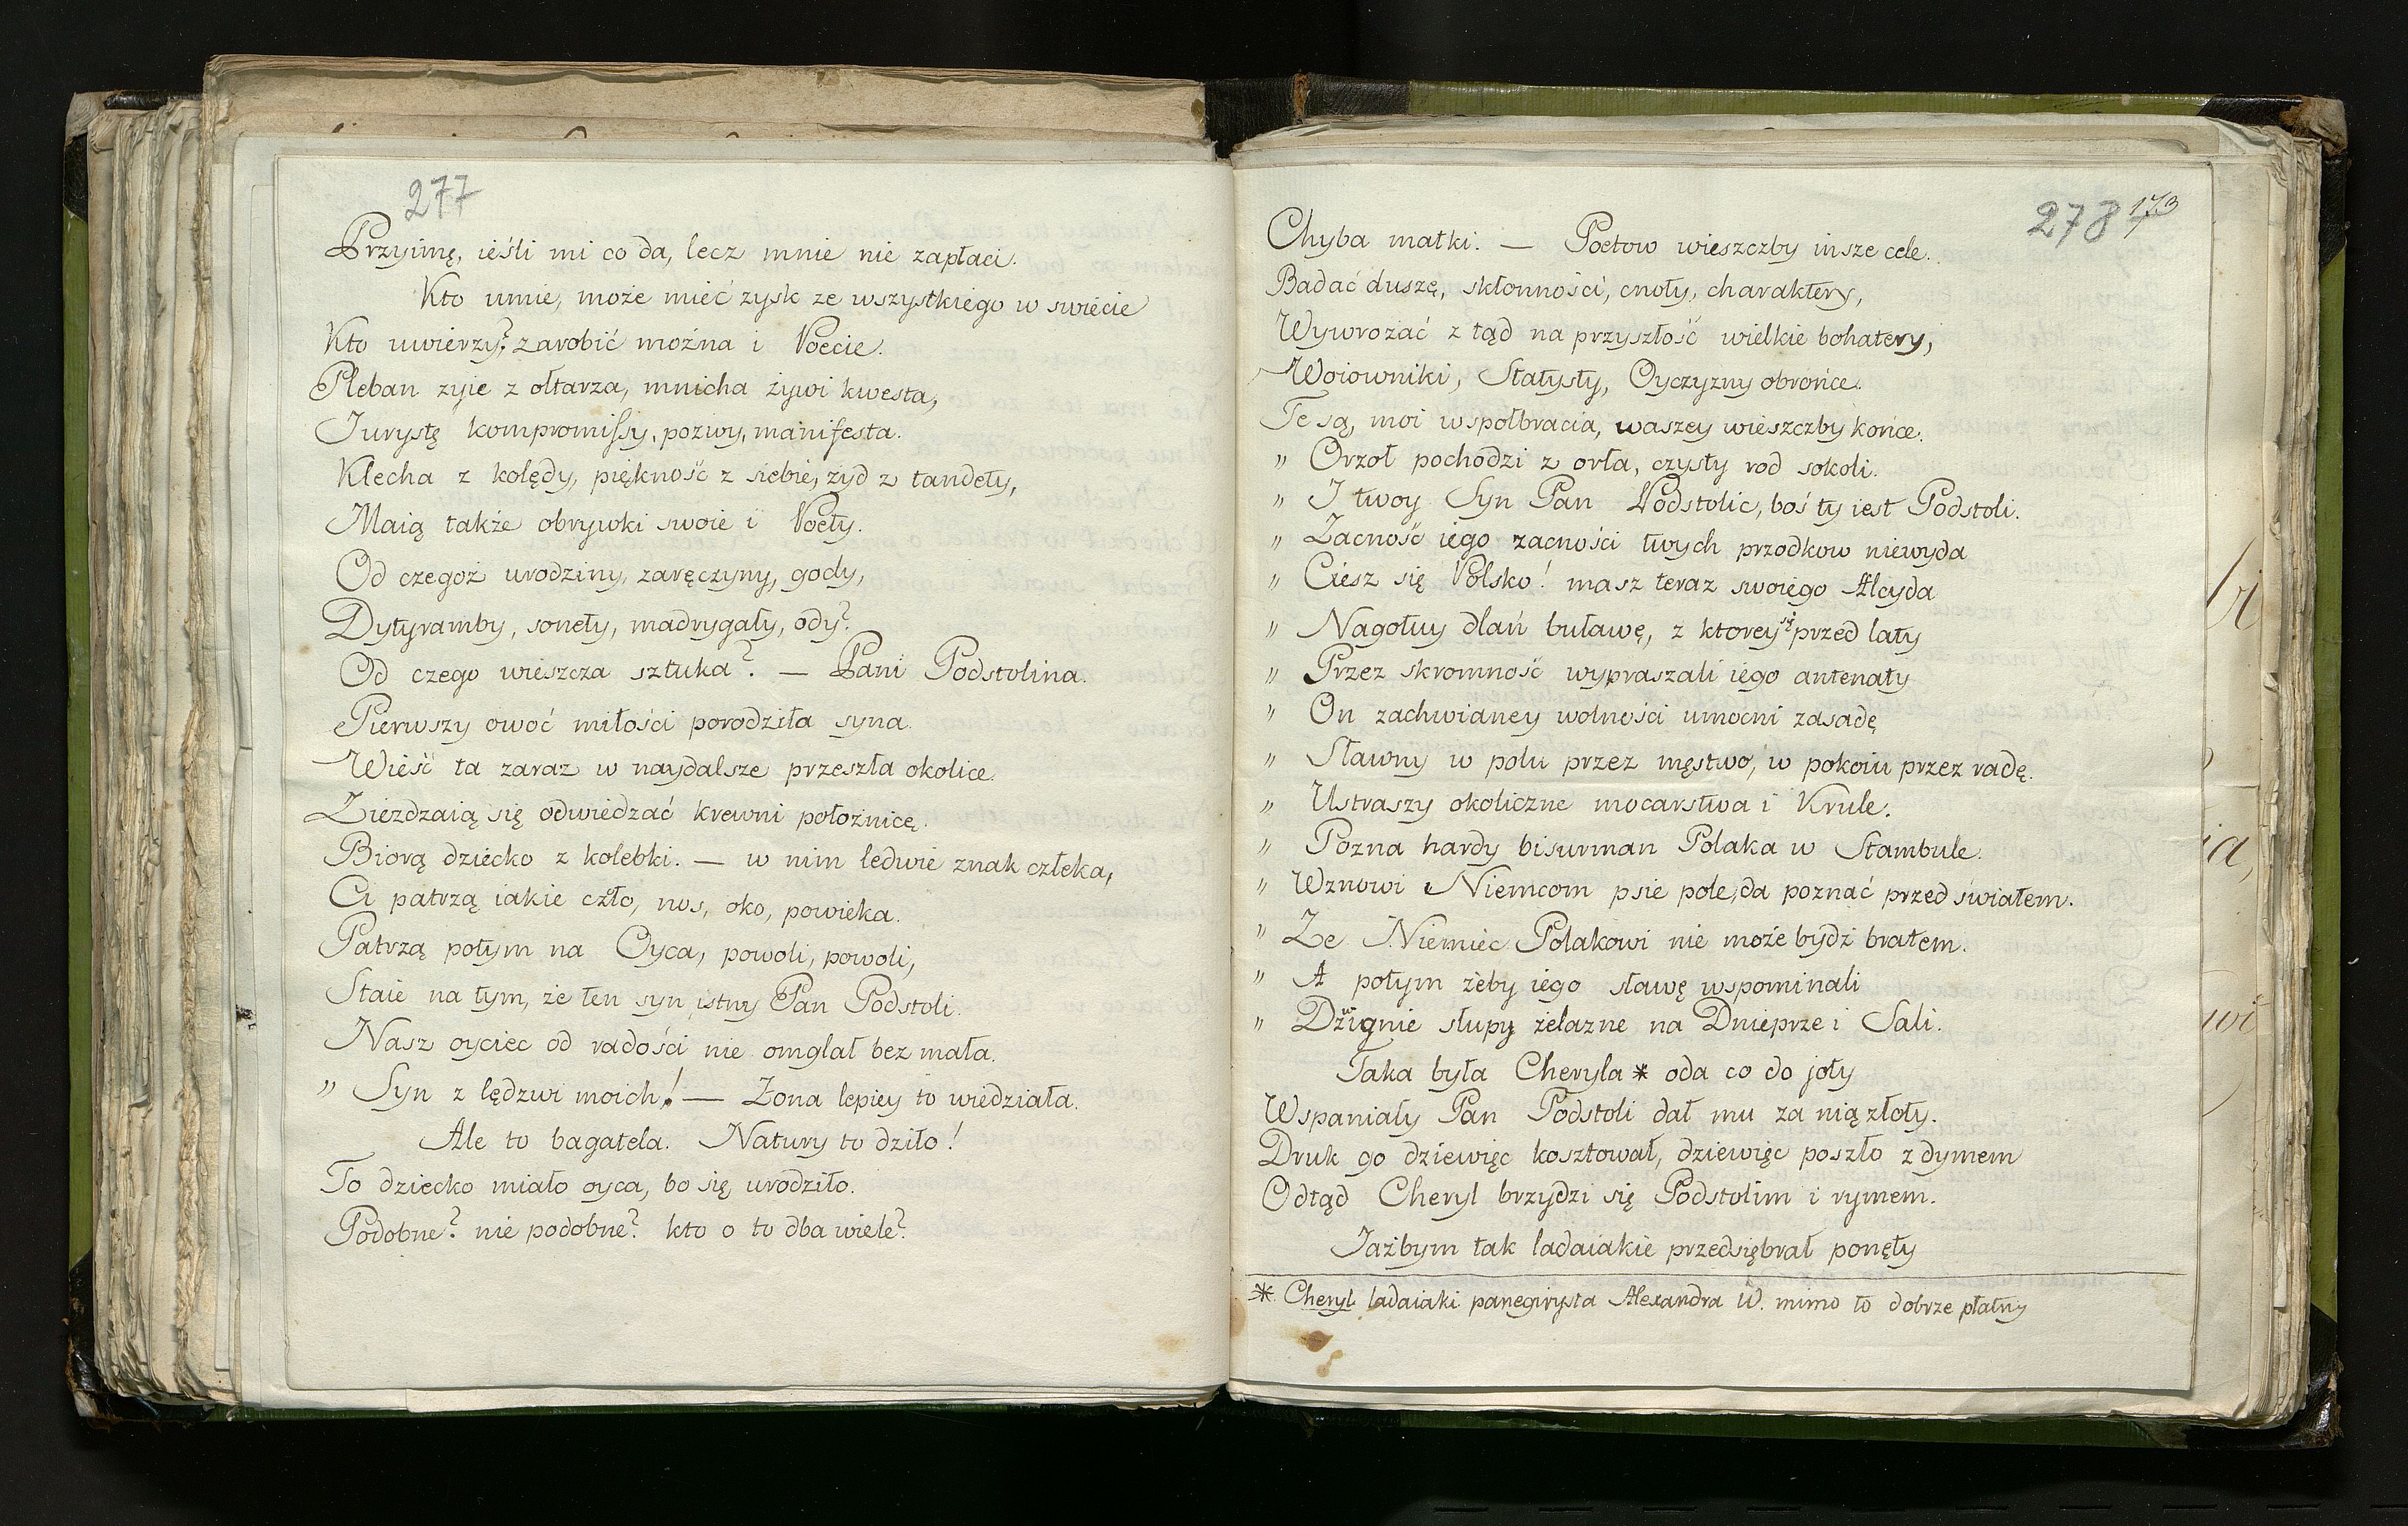 277
Przyimę, ieśli mi co da, lecz mnie nie zapłaci.
Kto umie, może mieć zysk ze wszystkiego w swiecie
Kto uwierzy? zarobić można i Poecie.
Pleban zyie z ołtarza, mnicha żywi kwesta,
Jurystę kompromissy, pozwy, manifesta.
Klecha z kolędy, piękność z siebie, zyd z tandety,
Maią także obrywki swoie i Poety.
Od czegoż urodziny, zaręczyny, gody,
Dytyramby, sonety, madrygały, ody?
Od czego wieszcza sztuka? — Pani Podstolina.
Pierwszy owoć miłości porodziła syna.
Wieść ta zaraz w naydalsze przeszła okolice.
Zieżdzaią się odwiedzać krewni położnicę.
Biorą dziecko z kolebki. — w nim ledwie znak człeka,
Ci patrzą iakie czło, nos, oko, powieka.
Patrzą potym na Oyca, powoli, powoli,
Staie na tym, że ten syn istny Pan Podstoli.
Nasz oyciec od radości nie omglał bez mała.
„ Syn z lędzwi moich! — Żona lepiey to wiedziała.
Ale to bagatela. Natury to dziło!
To dziecko miało oyca, bo się urodziło.
Podobne? nie podobne? kto o to dba wiele?
278 173
Chyba matki. — Poetow wieszczby insze cele.
Badać duszę, skłonności, cnoty, charaktery,
Wywrozać z tąd na przyszłość wielkie bohatery,
Woiowniki, Statysty, Oyczyzny obrońce.
Te są, moi wspołbracia, waszey wieszczby końce.
„ Orzoł pochodzi z orła, czysty rod sokoli.
„ I twoy Syn Pan Podstolic, boś ty iest Podstoli.
„ Zacność iego zacności twych przodkow niewyda
„ Ciesz się Polsko! masz teraz swoiego Alcyda
„ Nagotuy dlań buławę, z ktorey się przed laty
„ Przez skromność wypraszali iego antenaty
„ On zachwianey wolności umocni zasadę
„ Sławny w polu przez męstwo, w pokoiu przez radę.
„ Ustraszy okoliczne mocarstwa i Krule.
„ Pozna hardy bisurman Polaka w Stambule.
„ Wznowi Niemcom psie pole, da poznać przed światem.
„ Ze Niemiec Polakowi nie może bydź bratem.
„ A potym żeby iego sławę wspominali
„ Dźignie słupy żelazne na Dnieprze i Sali.
Taka była Cheryla * oda co do joty
Wspaniały Pan Podstoli dał mu za nią złoty.
Druk go dziewięc kosztował, dziewięc poszło z dymem
Odtąd Cheryl brzydzi się Podstolim i rymem.
Jażbym tak ladaiakie przedsiębrał ponęty
* Cheryl ladaiaki panegirysta Alexandra W. mimo to dobrze płatny